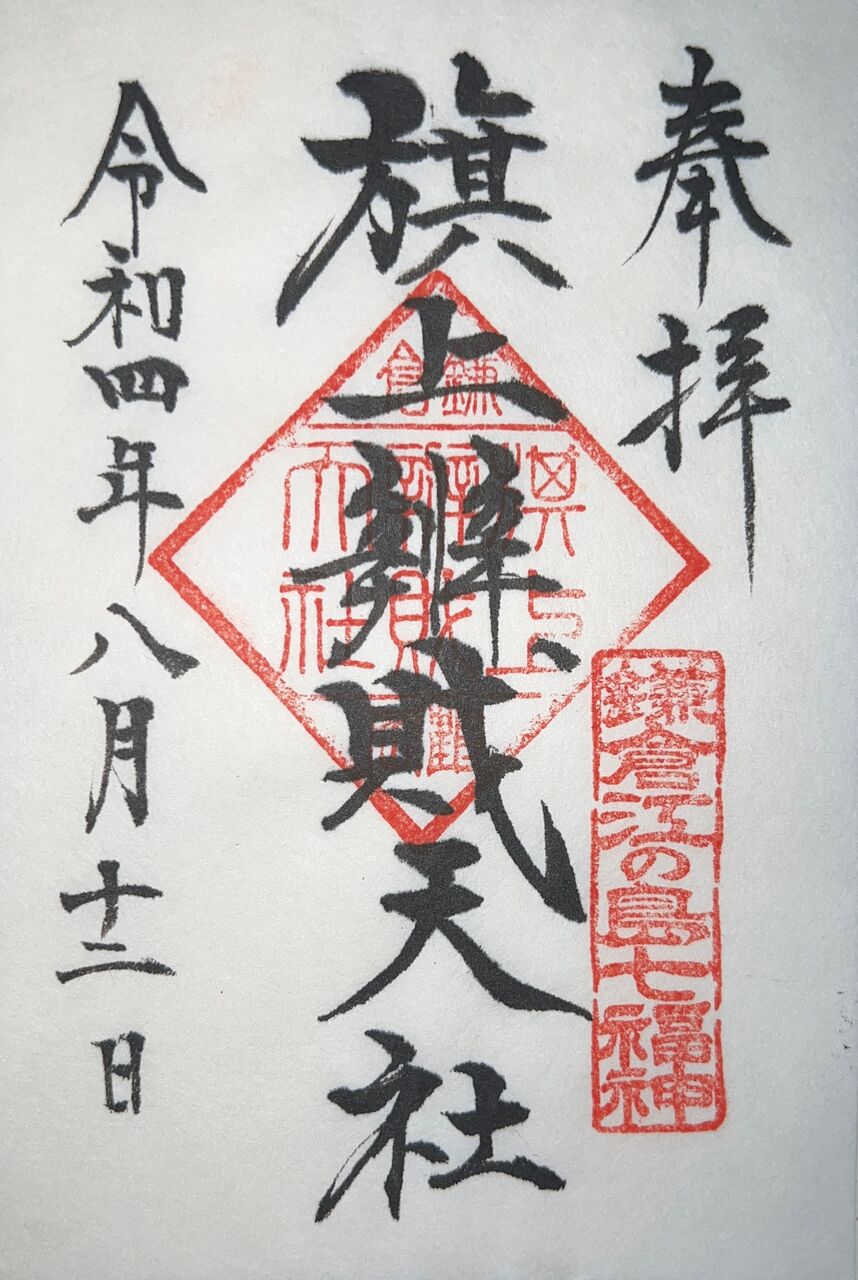 奉拝
鎌倉江の島七福神
旗上辨財天社
鎌倉
辨財
天社
令和四年八月十二日